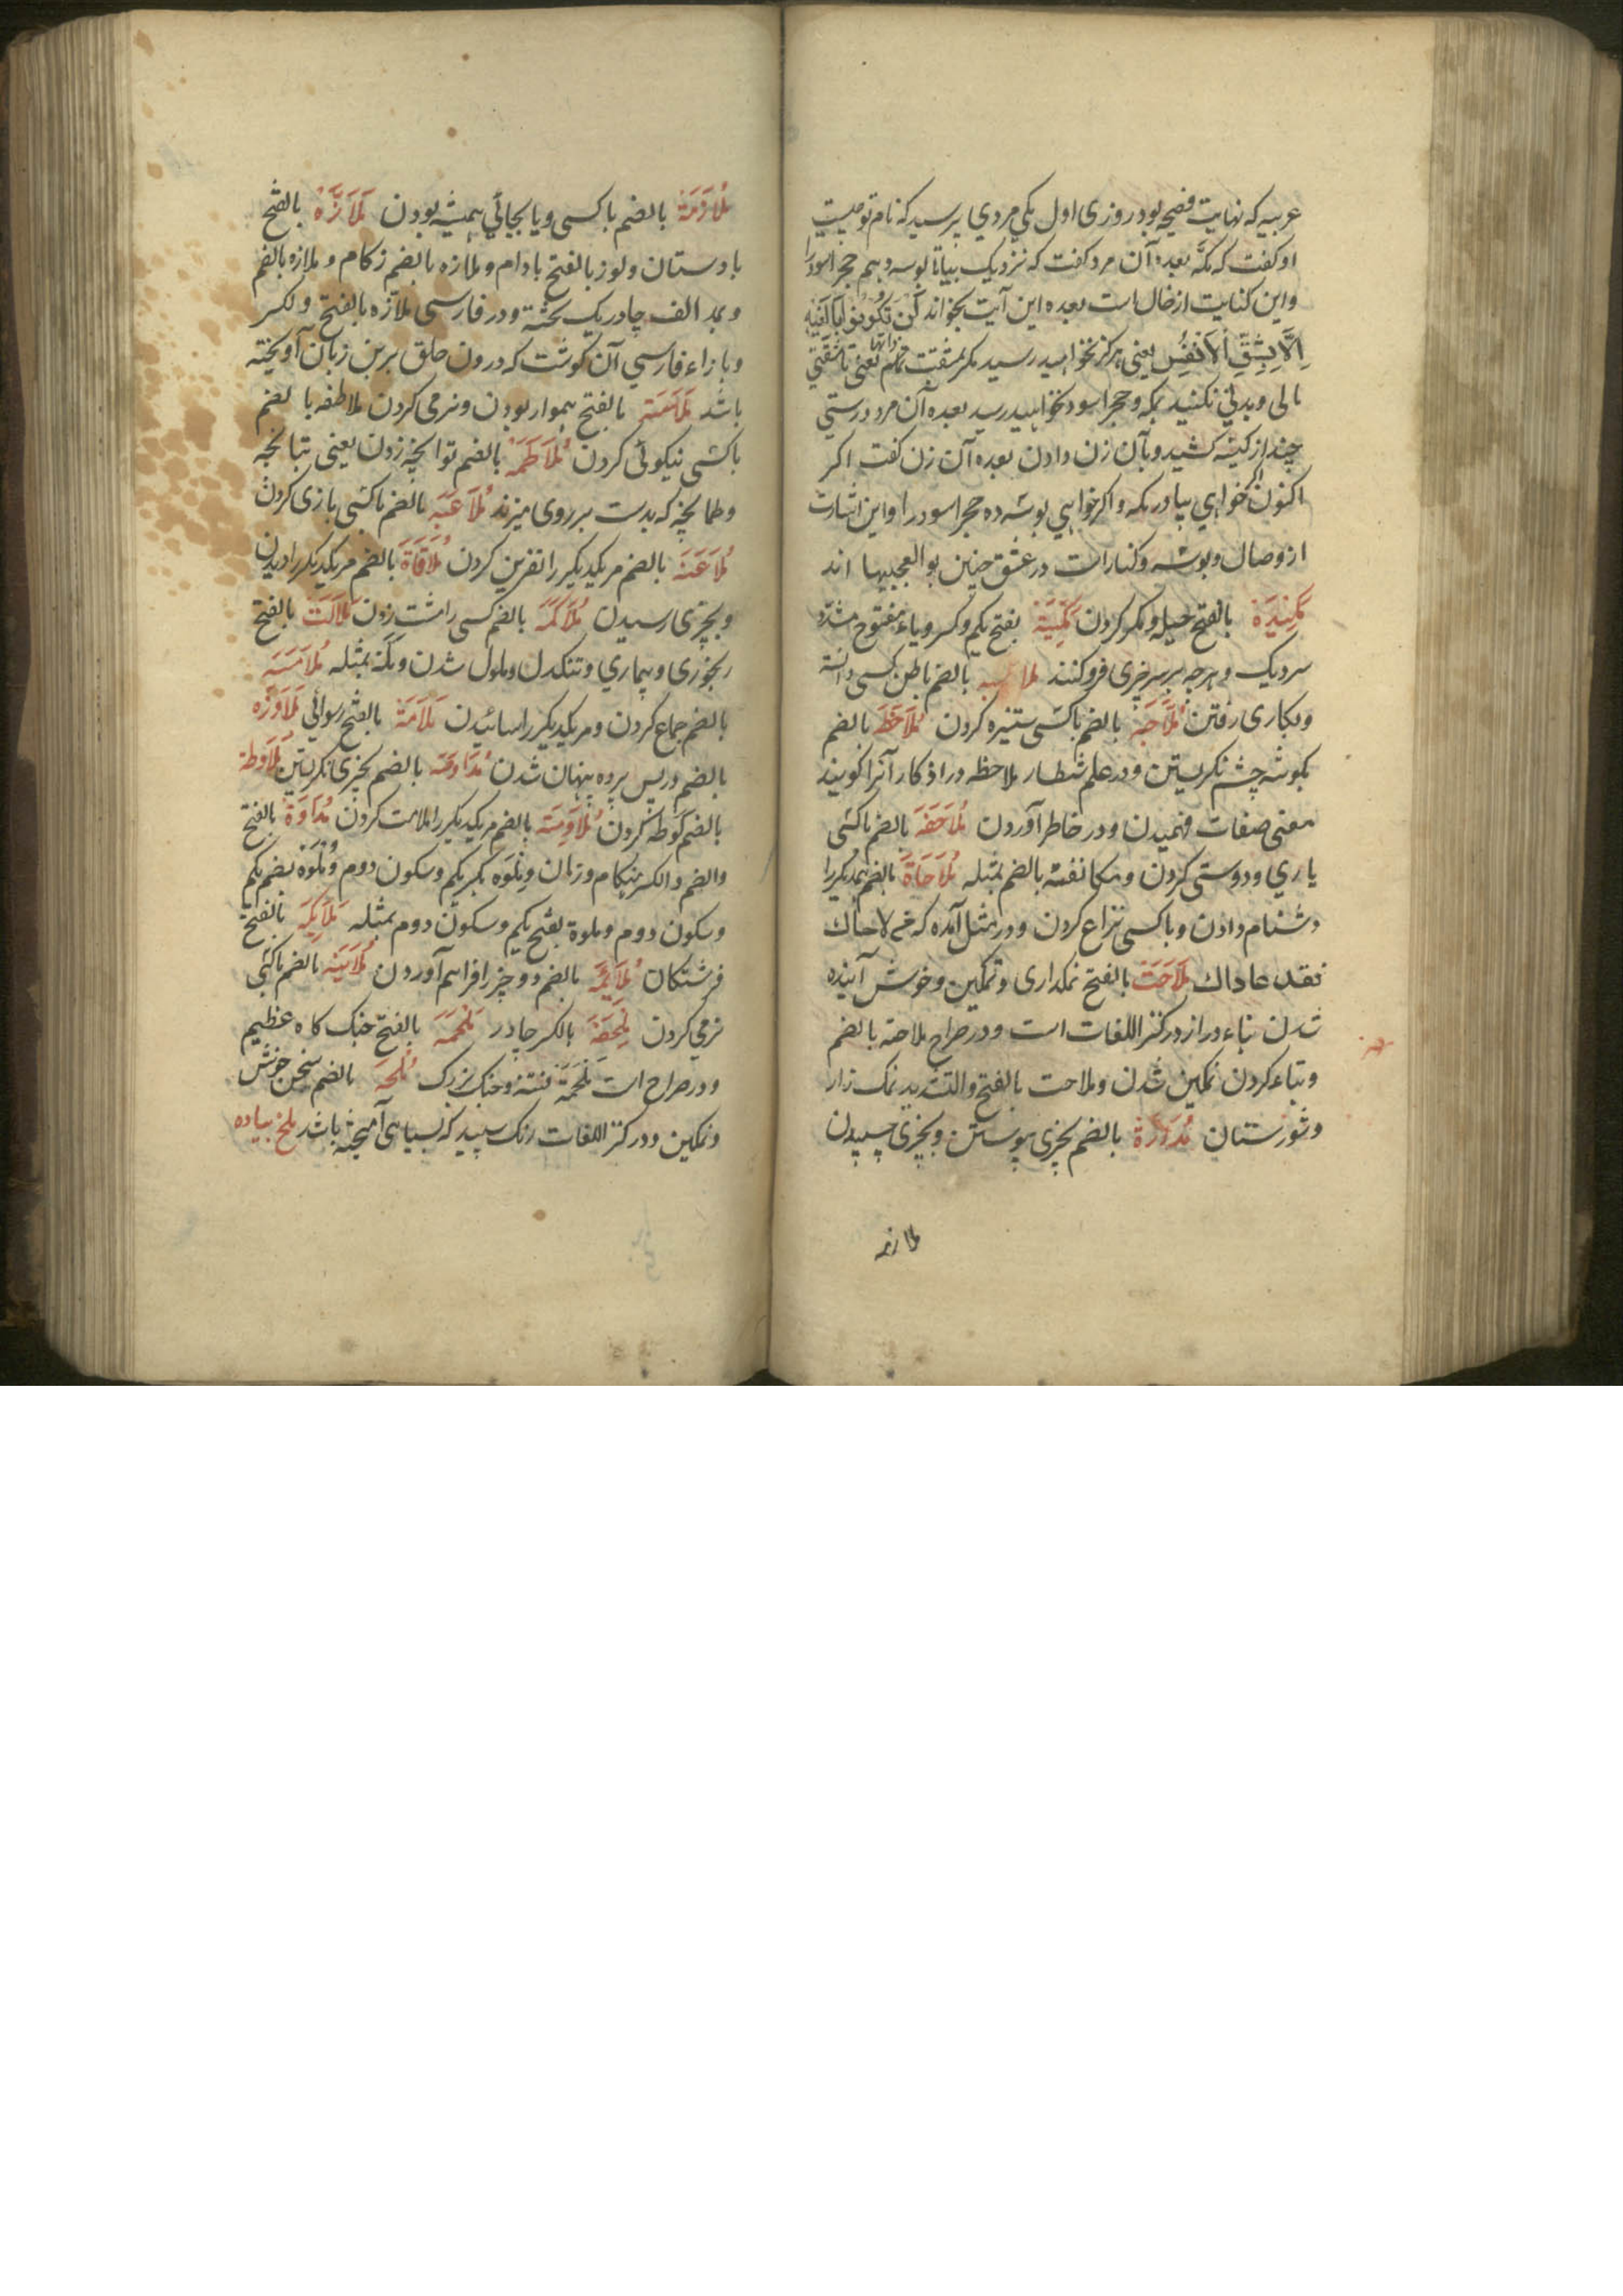 عربیه که نهایت فصیحه بود روزی اول یکی مردی پرسید که نام تو چیست
او گفت که مکّه بعده آن مرد گفت که نزدیک بیا تا بوسه دهم حجر اسود را
و این کنایت از خال است بعده این آیت بخواند لَن تَکُونُوا بَالِغِیهِ
اِلَّا بِشِقِّ الْاَنْفُسِ یعنی هرگز نخواهید رسید مگر بمشقت تمام یعنی تا مشقتی
مالی و بدنی نکنید بمکه و حجر اسود نخواهید رسید بعده آن مرد درستی
چند از کیسه کشید و بآن زن دادن بعده آن زن گفت اکر
اکنون اکر خواهی بیا در مکه و اکر خواهی بوسه ده حجر اسود را و این اشارت
از وصال و بوسه و کنار است در عشق چنین بوالعجبیها اند
مَکِیْدَة بالفتح حیله و مکر کردن مَکِبَّة بفتح یکم وکسر و باء مفتوح مشدد
سردیک و هرچه بر سر چیزی فرو کنند بالضم باطن کسی دانسته
و بکاری رفتن مُلَاجَّه بالضم باکسی ستیزه کردن مُلَاحَظَه بالضم
بکوشه چشم نکریستن و در علم شطار ملاحظه در اذکار آنرا کویند
معنی صفات فهمیدن و در خاطر آوردن مُلَاحَفَه بالضم باکسی
یاری و دوستی کردن و مکانفته بالضم بمثله مُلَاحَاة بالضم همدیکر را
دشنام دادن و باکسی نزاع کردن و در مثل آمده که من لاحاک
فقد عاداک مَلَاحَتْ بالفتح نمکداری و نمکین و خوش آینده
شدن بتاء دراز در کنز اللغات است و در صراح ملاحة بالضم
و بتاء کردن نمکین شدن و ملاحت بالفتح و التشدید نمک زار
و شورستان بالضم بچیزی پیوستن و بچیزی چسپیدن
ملازمه
مُلَازَمَة بالضم باکسی و یا بجائی همیشه بودن مَلَازَّه بالفتح
بادستان و لوز بالفتح بادام و ملازه بالضم زکام و ملازه بالضم
و بمد الف چادر یک لخته و در فارسی ملازه بالفتح و لکسر
و بازاء فارسی آن کوشت که در درون حلق بر بن زبان آویخته
باشد بالفتح هموار بودن و نرمی کردن ملاطفه بالضم
باکسی نیکوئی کردن مُلَاطَمَه بالضم توانچه زدن یعنی تبانچه
و طمانچه که بدست بر روی میزند مُلَاعَبَه بالضم باکسی بازی کردن
مُلَاعَنَه بالضم مریکدیکر را نفرین کردن مُلَاقَاة بالضم مریکدیکر را دیدن
و بچیزی رسیدن مُلَاکَمَه بالضم کسی را مشت زدن مَلَالَت بالفتح
رنجوری و بیماری و تنکدل و ملول شدن بمثله مُلَامَسَه
بالضم جماع کردن و مریکدیکر را سائیدن مَلَامَة بالفتح رسوائی مُلَاوَذَه
بالضم در پس پرده پنهان شدن بالضم بچیزی نکریستن مُلَاوَطه
بالضم لوطه کردن مُلَاوَمَه بالضم مریکدیکر را ملامت کردن مُلَاوَة بالفتح
والضم و الکسر هنکام و زمان و مِلْوَه بکسر یکم و سکون دوم و مُلْوَه بضم یکم
و سکون دوم و ملوة بفتح یکم و سکون دوم بمثله مَلَایِکَه بالفتح
فرشتکان بالضم دو چیز را فراهم آوردن مُلَایَنَه بالضم باکسی
نرمی کردن مِلْحَفَه بالکسر چادر مَلْحَمَه بالفتح جنک کاه عظیم
و در صراح است مَلْحَمَة فتنه و جنک بزرک مُلْحَه بالضم سخن خوش
و نمکین و در کنز اللغات رنک سپید که بسیاهی آمیخته باشد ملخ پیاده